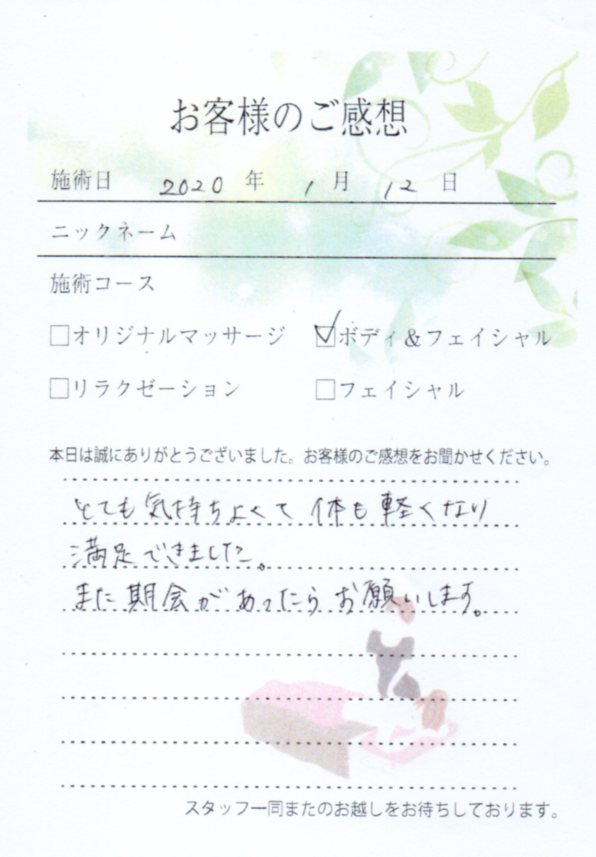 お客様のご感想
施術日 2020 年 1 月 12 日
ニックネーム
施術コース
□オリジナルマッサージ ☑ボディ&フェイシャル
□リラクゼーション □フェイシャル
本日は誠にありがとうございました。お客様のご感想をお聞かせください。
とても気持ちよくて体も軽くなり
満足できました。
また期会があったらお願いします。
スタッフ一同またのお越しをお待ちしております。